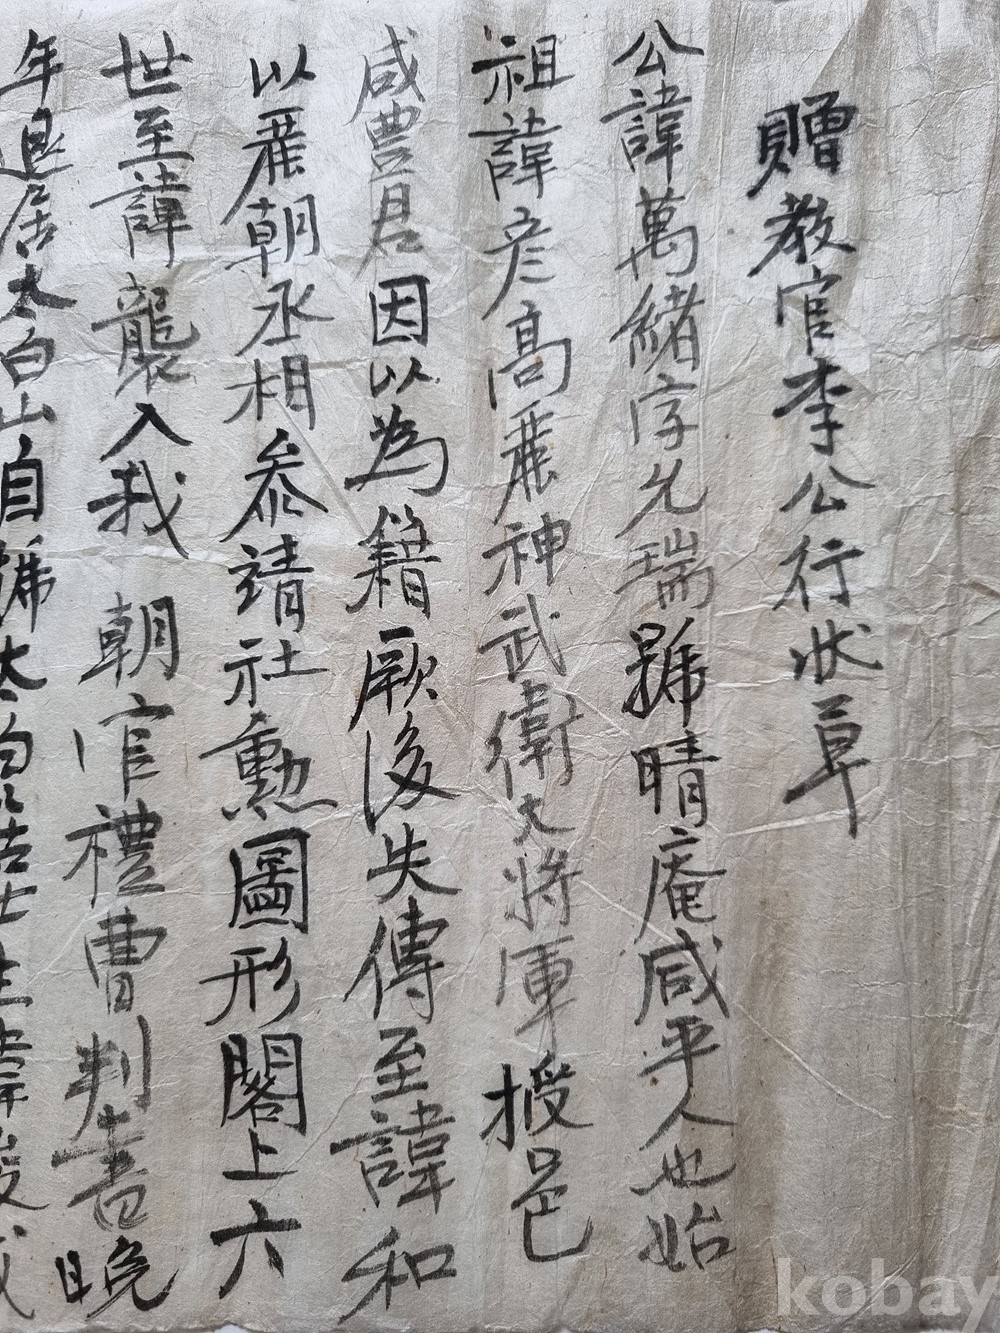 贈教官李公行狀草
公諱萬緖字允瑞號晴庵咸平人也始
祖諱彦高麗神武衛大將軍授邑
咸豊君因以為籍厥後失傳至諱和
以麗朝丞相叅靖社勳圖形閣上六
世至諱襲入我 朝官禮曹判書晩
年退居太白山自號太白居士生諱俊成
kobay